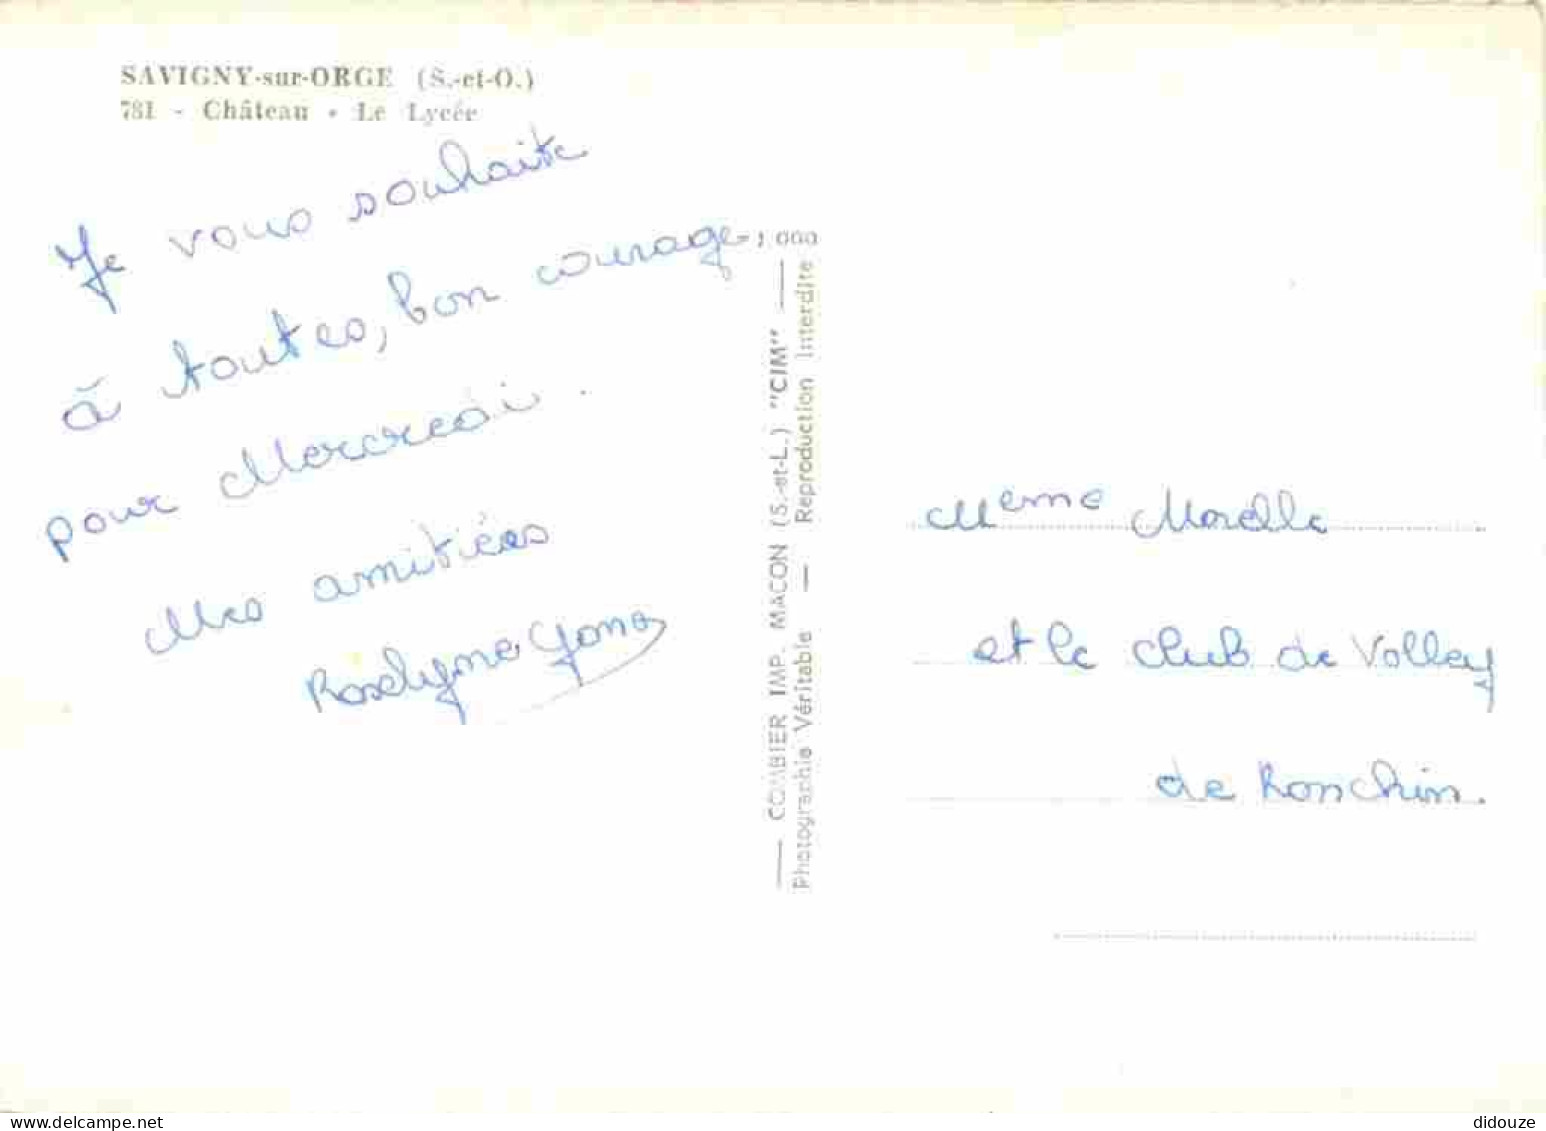 SAVIGNY-sur-ORGE (S.-et-O.)
781 - Château - Le Lycée
Je vous souhaite
à toutes, bon courage
pour
Mes amitiées
Roselyne
COMBIER IMP. MACON (S.-et-L.) "CIM"
Photographie Véritable — Reproduction Interdite
Meme Morelle
et le club de Volley
de Ronchin.
delcampe.net
didouze